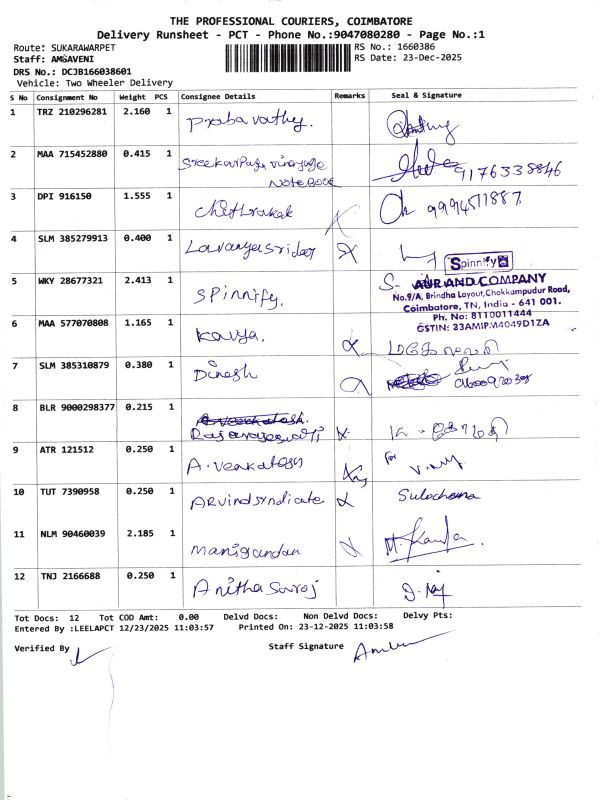 THE PROFESSIONAL COURIERS, COIMBATORE
Delivery Runsheet - PCT - Phone No.:9047080280 - Page No.:1
Route: SUKARAWARPET
RS No.: 1660386
Staff: AMSAVENI
RS Date: 23-Dec-2025
DRS No.: DCJB166038601
Vehicle: Two Wheeler Delivery
S No Consignment No Weight PCS Consignee Details Remarks Seal & Signature
1 TRZ 210296281 2.160 1 Prabavathy.
2 MAA 715452880 0.415 1 Sreekarpaga vinayaga 9176338846
NOTEBOOK
3 DPI 916150 1.555 1 Chithrakak 9994511887
4 SLM 385279913 0.400 1 Lavanyasridar
Spinnify
5 WKY 28677321 2.413 1 SPinnify. S- AUR AND COMPANY
No.9/A, Brindha Layout, Chokkampudur Road,
Coimbatore, TN, India - 641 001.
Ph. No: 8110011444
GSTIN: 33AMIPM4049D1ZA
6 MAA 577070808 1.165 1 Kavya.
7 SLM 385310879 0.380 1 Dinesh
8 BLR 9000298377 0.215 1 Rajarajeswari
9 ATR 121512 0.250 1 A. Venkatesh for
10 TUT 7390958 0.250 1 ARvind syndicate Sulochana
11 NLM 90460039 2.185 1 Manigandan
12 TNJ 2166688 0.250 1 Anitha Saroj
Tot Docs: 12 Tot COD Amt: 0.00 Delvd Docs: Non Delvd Docs: Delvy Pts:
Entered By :LEELAPCT 12/23/2025 11:03:57 Printed On: 23-12-2025 11:03:58
Verified By Staff Signature